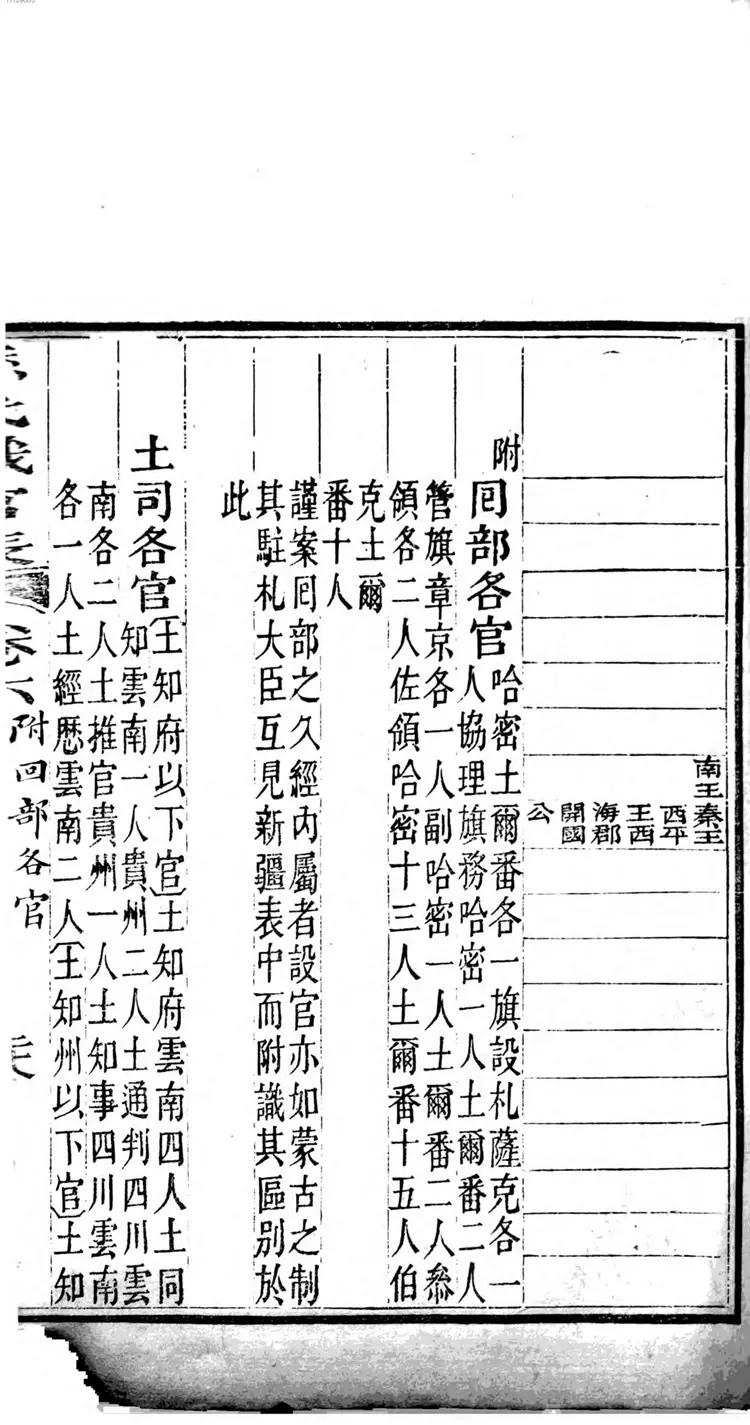 南王秦王
西平
王西
海郡
開國
公
附
囘部各官哈密土爾番各一旗設札薩克各一
人協理旗務哈密一人土爾番二人
管旗章京各一人副哈密一人土爾番二人叅
領各二人佐領哈密十三人土爾番十五人伯
克土爾
番十人
謹案囘部之久經內屬者設官亦如蒙古之制
其駐札大臣互見新疆表中而附識其區別於
此
土司各官土知府以下官土知府雲南四人土同
知雲南一人貴州二人土通判四川雲
南各二人土推官貴州一人土知事四川雲南
各一人土經歷雲南二人土知州以下官土知
職官表 卷六 附回部各官